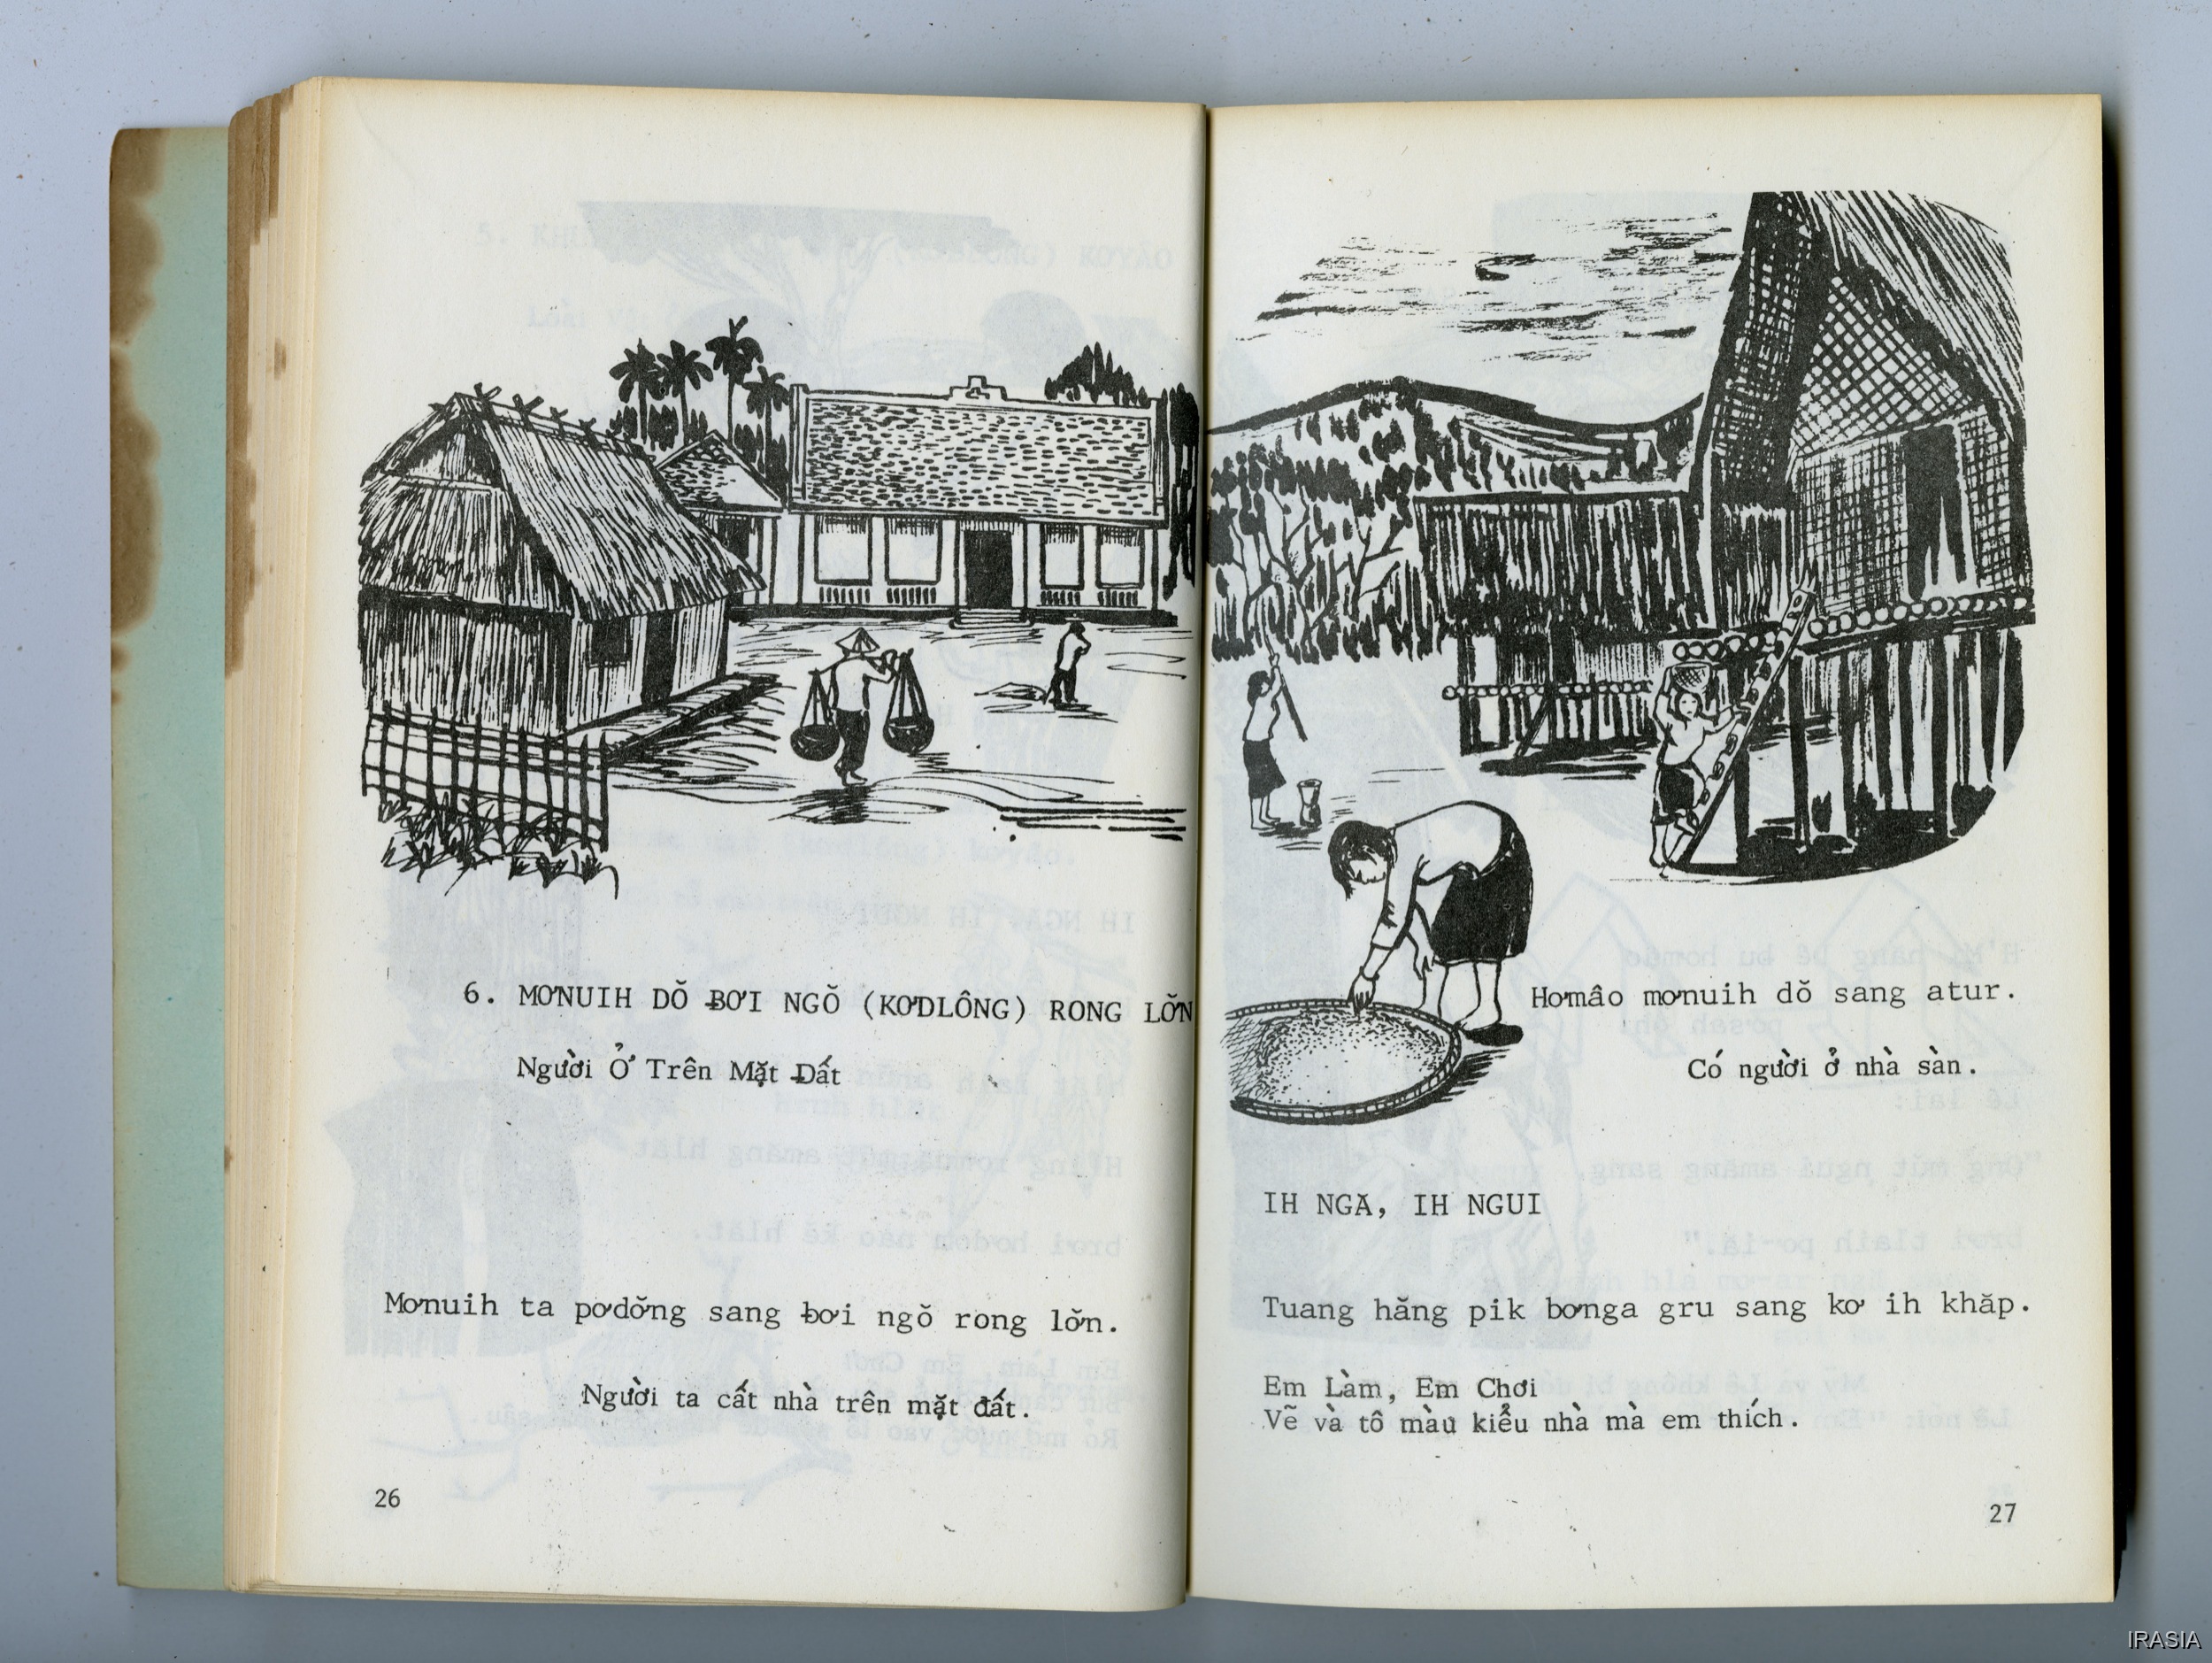 6. MƠNUIH DŎ ƀƠI NGŎ (KƠDLÔNG) RONG LƠ̆N
Người Ở Trên Mặt Đất
Mơnuih ta pơdơ̆ng sang ƀơi ngŏ rong lơ̆n.
Người ta cất nhà trên mặt đất.
26
Hơmâo mơnuih dŏ sang atur.
Có người ở nhà sàn.
IH NGA, IH NGUI
Tuang hăng pik bơnga gru sang kơ ih khăp.
Em Làm, Em Chơi
Vẽ và tô màu kiểu nhà mà em thích.
27
IRASIA